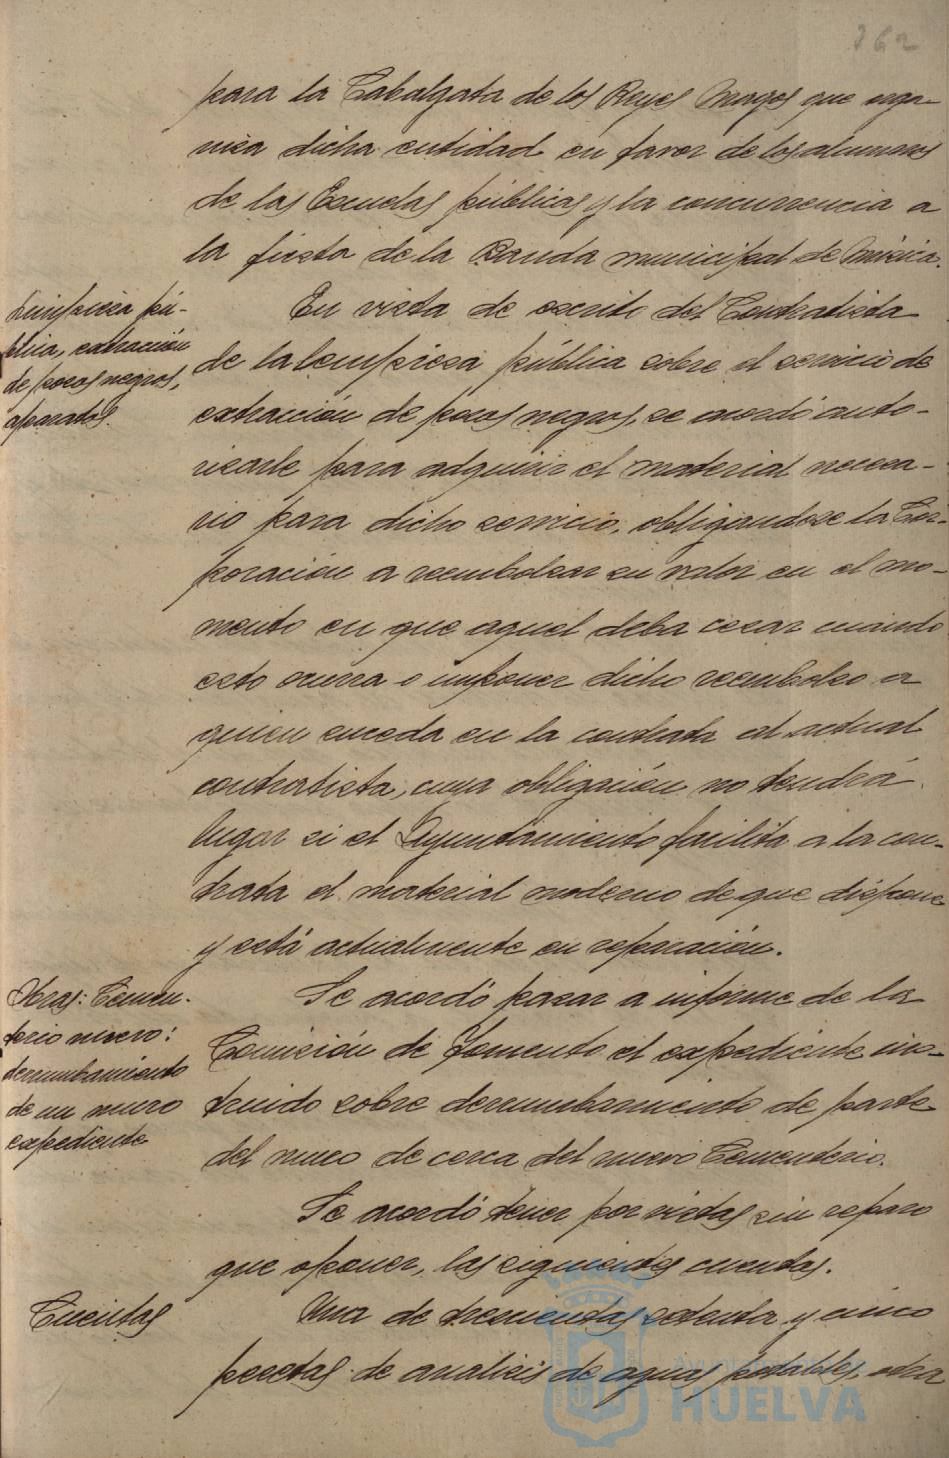 262
para la Cabalgata de los Reyes Magos que orga-
niza dicha entidad en favor de los alumnos
de las Escuelas públicas y la concurrencia a
la fiesta de la Banda municipal de Música.
Limpieza pú-
blica, extracción
de pozos negros,
aparatos.
En vista de escrito del Contratista
de la limpieza pública sobre el servicio de
extracción de pozos negros, se acordó auto-
rizarle para adquirir el material necesa-
rio para dicho servicio, obligandose la Cor-
poración a reembolsar su valor en el mo-
mento en que aquel deba cesar cuando
esto ocurra o imponer dicho reembolso a
quien suceda en la contrata al actual
contratista, cuya obligación no tendrá
lugar si el Ayuntamiento facilita a la con-
trata el material moderno de que dispone
y está actualmente en reparación.
Obras: Cemen-
terio nuevo:
derrumbamiento
de un muro
expediente
Se acordó pasar a informe de la
Comisión de Fomento el expediente ins-
truido sobre derrumbamiento de parte
del muro de cerca del nuevo Cementerio.
Se acordó tener por vistas sin reparo
que oponer, las siguientes cuentas.
Cuentas
Una de trescientas setenta y cinco
pesetas de analisis de aguas potables, otra
HUELVA